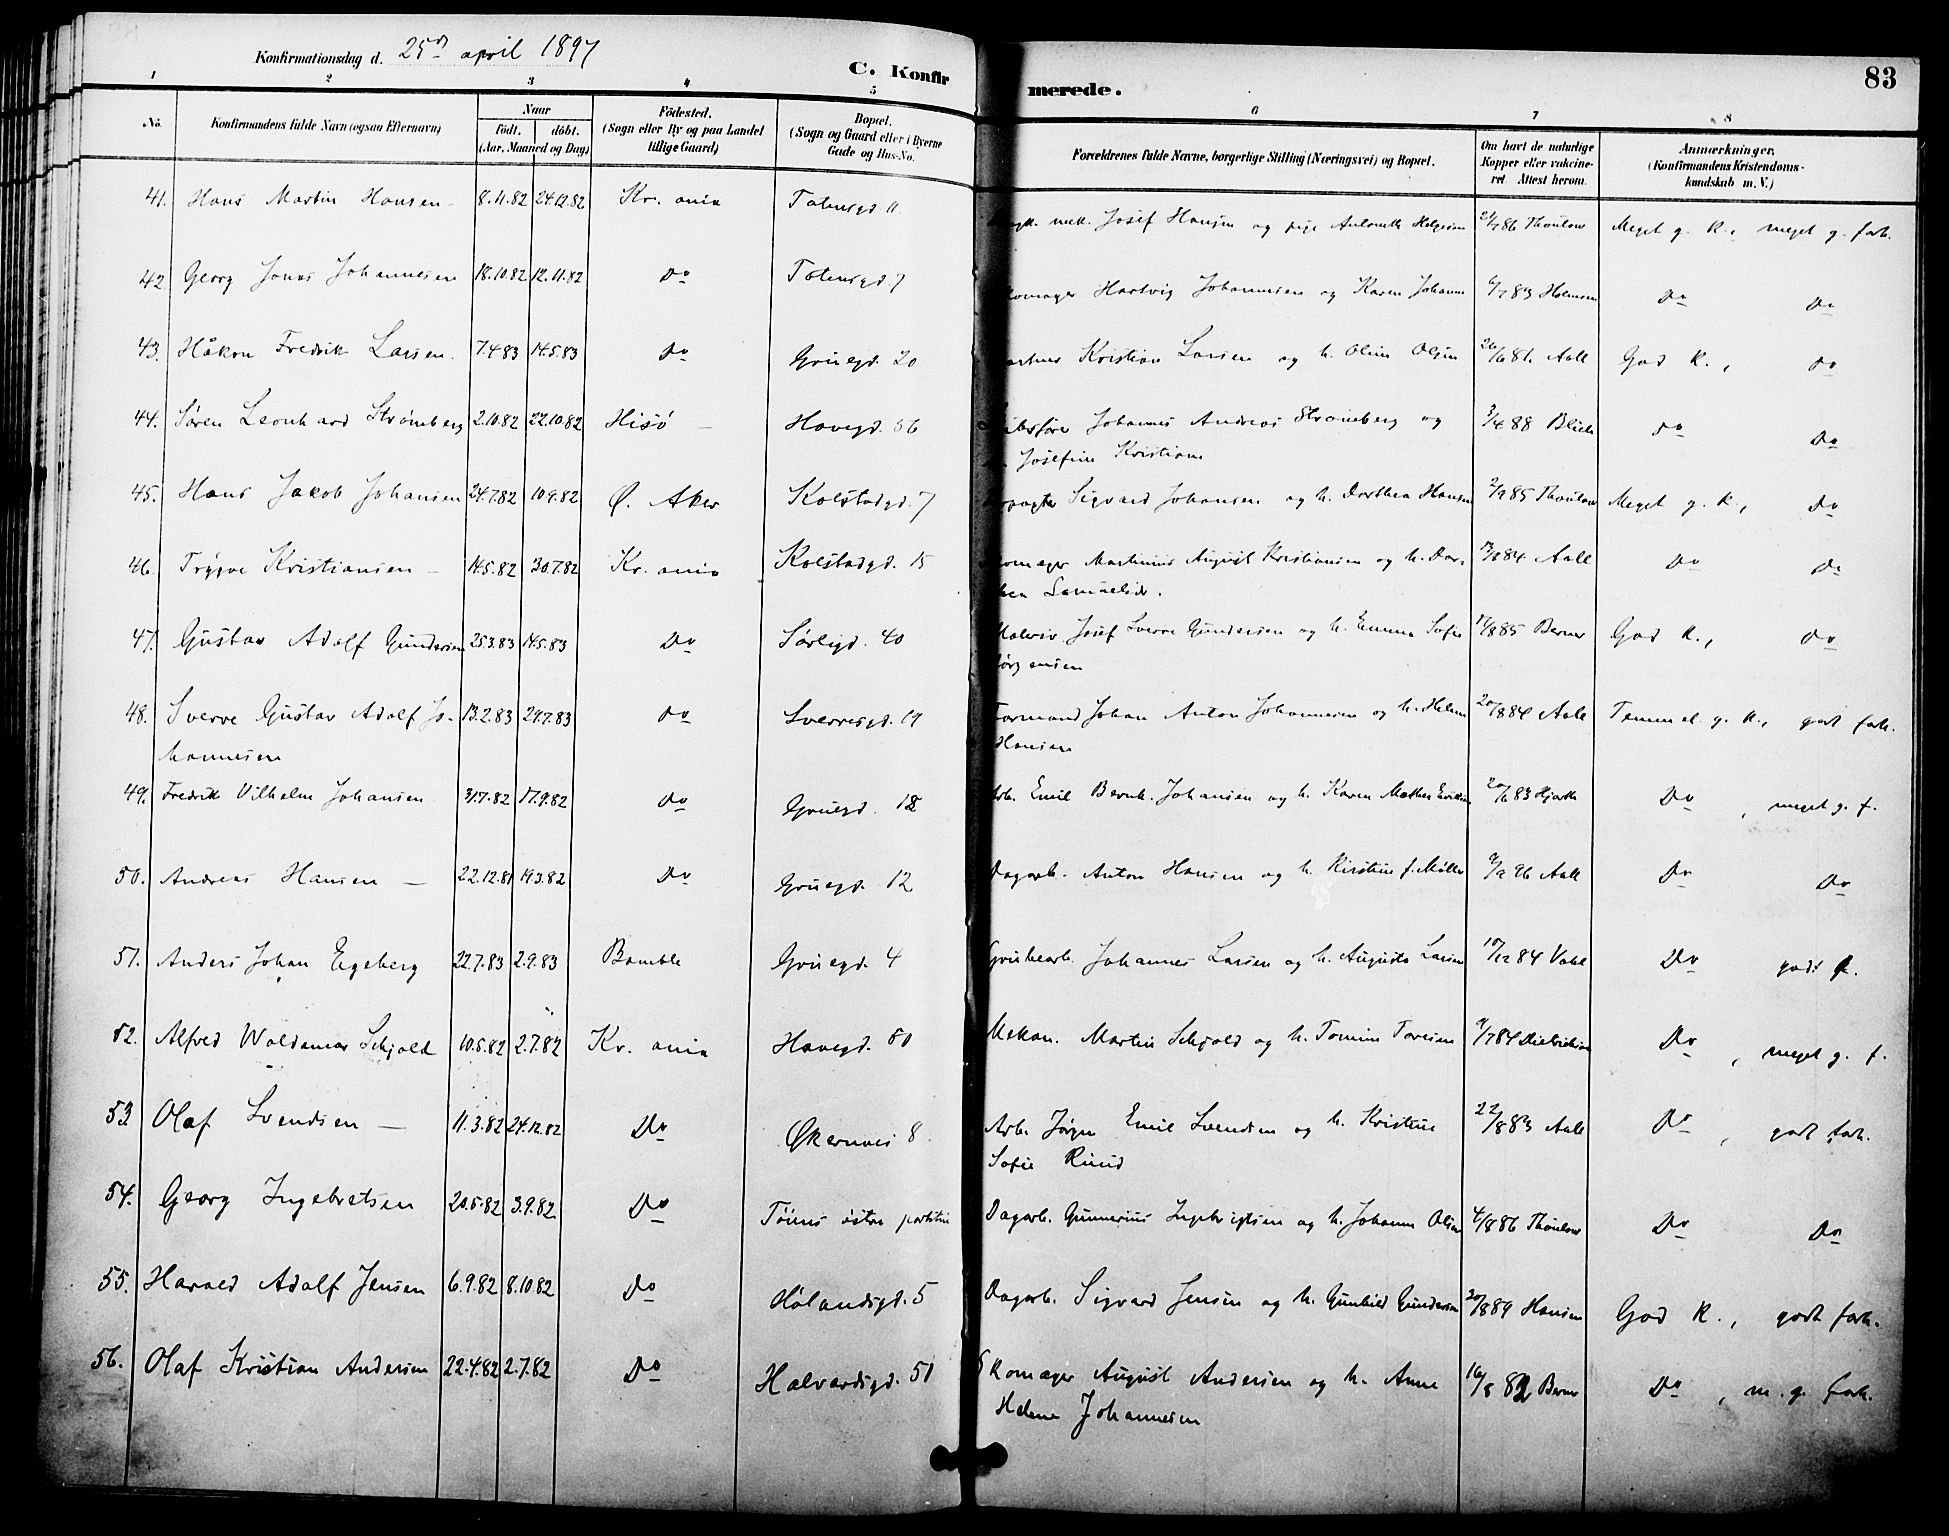 Konfirmationsdag d. 25de april 1897
C. Konfirmerede.
83
1 2 3 4 5 6 7 8
No. Konfirmandens fulde Navn (ogsaa Efternavn) Naar födt. döbt. (Aar, Maaned og Dag) Födested. (Sogn eller By og paa Landet tillige Gaard) Bopæl. (Sogn og Gaard eller i Byerne Gade og Hus-No. Forældrenes fulde Navne, borgerlige Stilling (Næringsvei) og Bopæl. Om havt de naturlige Kopper eller vakcineret. Attest herom. Anmærkninger. (Konfirmandens Kristendomskundskab m. V.)
41. Hans Martin Hansen – 8.11.82 24.12.82 Kr. ania Totensgd 11. mek. Josef Hansen og pige Antonette Helgesen 21/7 86 Thoulow Meget g. K., meget g. forh.
42. Georg Jonas Johannesen 18.10.82 12.11.82 Do Totensgd. 7 Hartvig Johannesen og Karen Johanne 6/7 83 Holmsen Do Do
43. Håkon Fredrik Larsen. 7.4.83 14.5.83 Do Gruegd. 20 Kristian Larsen og h. Oline Olsen 26/6 81. Aall God K., Do
44. Søren Leonhard Strömberg 2.10.82 22.10.82 Hisö – Havegd. 56 Johannes Andreas Strømberg og
Josefine Kristians 3/4 88 Blich Do Do
45. Hans Jakob Johansen 24.7.82 10.9.82 Ø. Aker Kolstadgd. 7 Sigvard Johansen og h. Dorthea Hansen 2/9 85 Thoulow Meget g. K., Do
46. Trygve Kristiansen – 14.5.82 30.7.82 Kr. ania Kolstadgd. 15 Martinius August Kristiansen og h. Dor-
thea Samuelsdr. 13/8 84 Aall Do Do
47. Gustav Adolf Gundersen 25.3.83 14.5.83 Do Sørligd. 40 Josef Sverre Gundersen og h. Emma Sofie
Jørgensen 14/8 85 Berner God K., Do
48. Sverre Gustav Adolf Jo-
hannesen 13.2.83 29.7.83 Do Sverresgd. 19 Formand Johan Anton Johannesen og h. Helene
Hansen 20/8 84 Aall Temmel. g. K., godt forh.
49. Fredrik Vilhelm Johansen 31.7.82 17.9.82 Do Gruegd. 18 Arb. Emil Bernh. Johansen og h. Karen Mathea 20/6 83 Hjorth Do , meget g. f.
50. Andreas Hansen – 22.12.81 19.3.82 Do Gruegd. 12 Dagarb. Anton Hansen og h. Kirstine f. Møller 9/2 96 Aall Do Do
51. Anders Johan Egeberg 22.7.83 2.9.83 Bamble Gruegd. 4 Johannes Larsen og h. Augusta Larsen 10/12 84 Vahl Do godt f.
52. Alfred Waldemar Schjold 10.5.82 2.7.82 Kr. ania Havegd. 50 Mekan. Martin Schjold og h. Tomine Toresen 9/7 84 Dietrichson Do , meget g. f.
53 Olaf Svendsen – 11.3.82 24.12.82 Do Økernvei 8. Arb. Jørgen Emil Svendsen og h. Kristine
Sofie Ruud 22/8 83 Aall Do , godt forh.
54. Georg Ingebretsen 20.5.82 3.9.82. Do Tøiens østre portstue Dagarb. Gunnerius Ingebrigtsen og h. Johanne Olsen 4/8 86 Thoulow Do Do
55. Harald Adolf Jensen 6.9.82 8.10.82 Do Hølandsgd. 5 Dagarb. Sigvard Jensen og h. Gunhild Gundersen 20/8 89 Hansen God K., godt forh.
56. Olaf Kristian Andersen 22.4.82 2.7.82 Do Halvardsgd. 51 Skomager August Andersen og h. Anne
Helene Johannesen 16/8 82 Berner Do , m. g. forh.